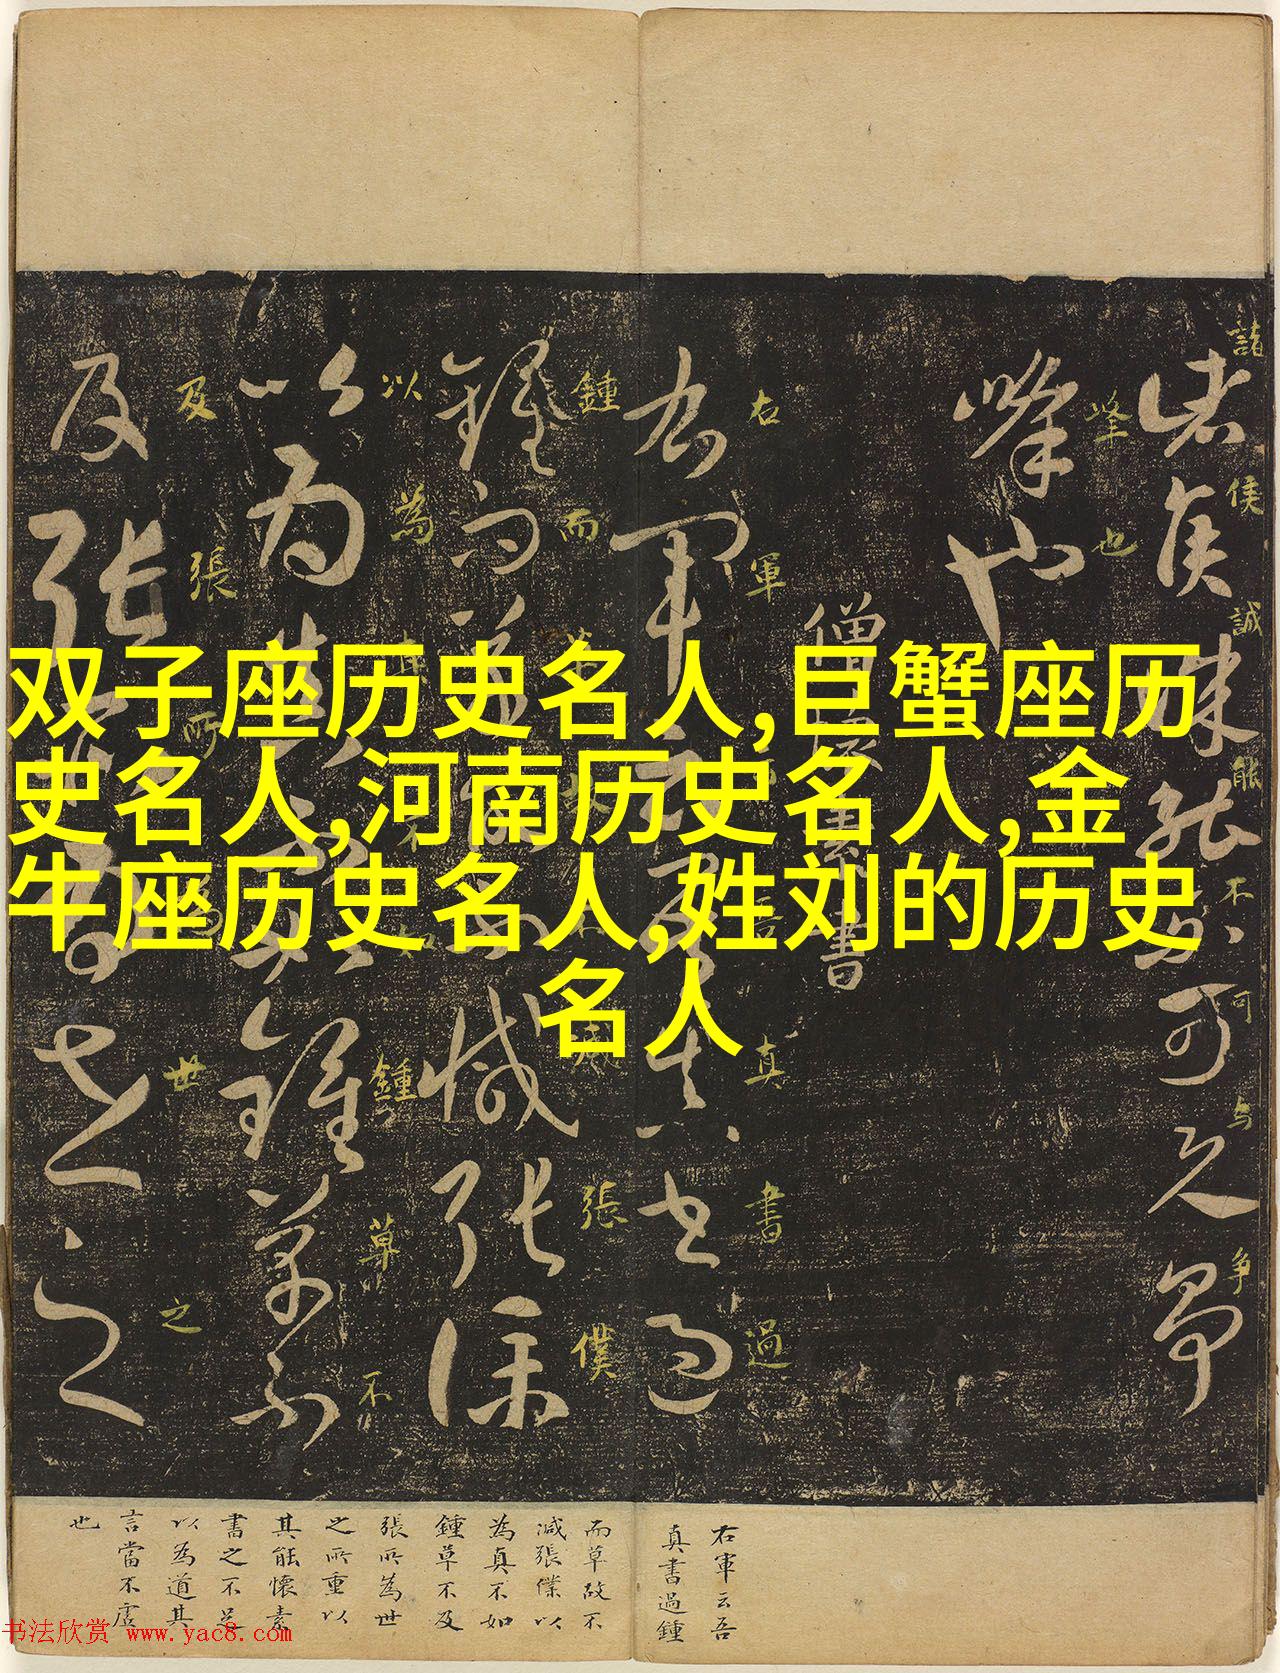 双子座历史名人,巨蟹座历
史名人,河南历史名人,金
牛座历史名人,姓刘的历史
名人
諸侯誠能不可与争
峰也
僧懷素書
右軍云吾真書過
鍾而草故不減張僕
以為真不如鍾草不
及張所為世之
右軍云吾
真書過鍾
而草故不
減張僕以
為真不如
鍾草不及
張所為世
之所重以
其能懷素
書之不足
以為道其
言當不虛
也
书法欣赏 www.yac8.com